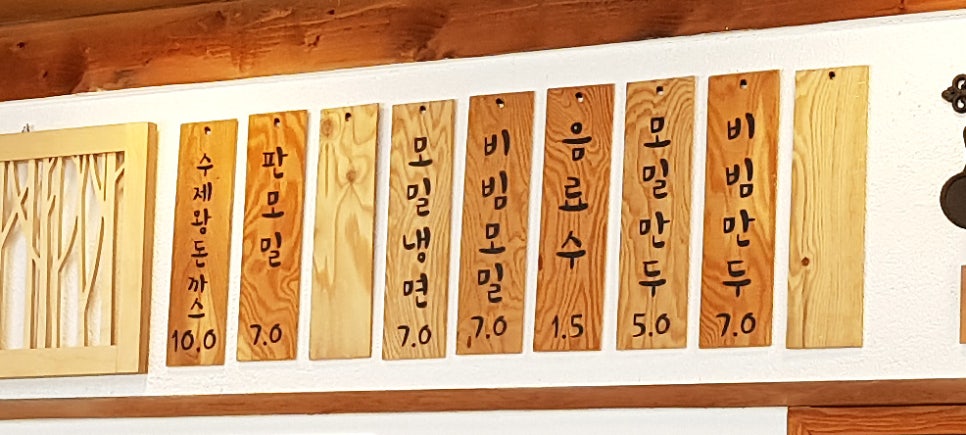 수제왕돈까스
10.0
판모밀
7.0
모밀냉면
7.0
비빔모밀
7.0
음료수
1.5
모밀만두
5.0
비빔만두
7.0